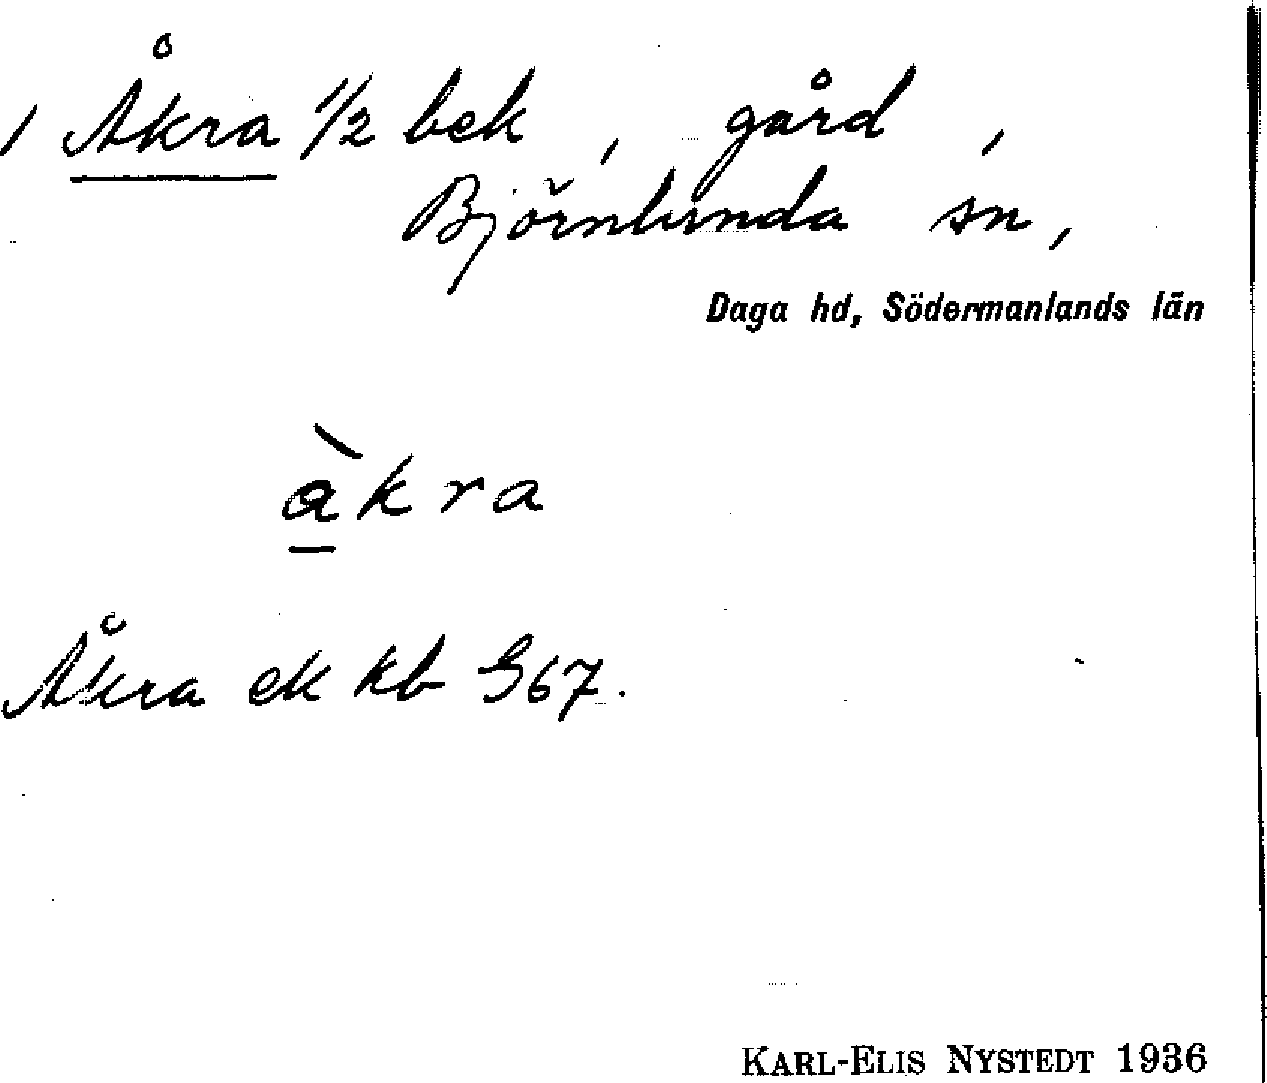 / Åkra 1/2 bek, gård,
Björnlunda sn,
Daga hd, Södermanlands län
àkra
Åkra ek kb 367.
KARL-ELIS NYSTEDT 1936